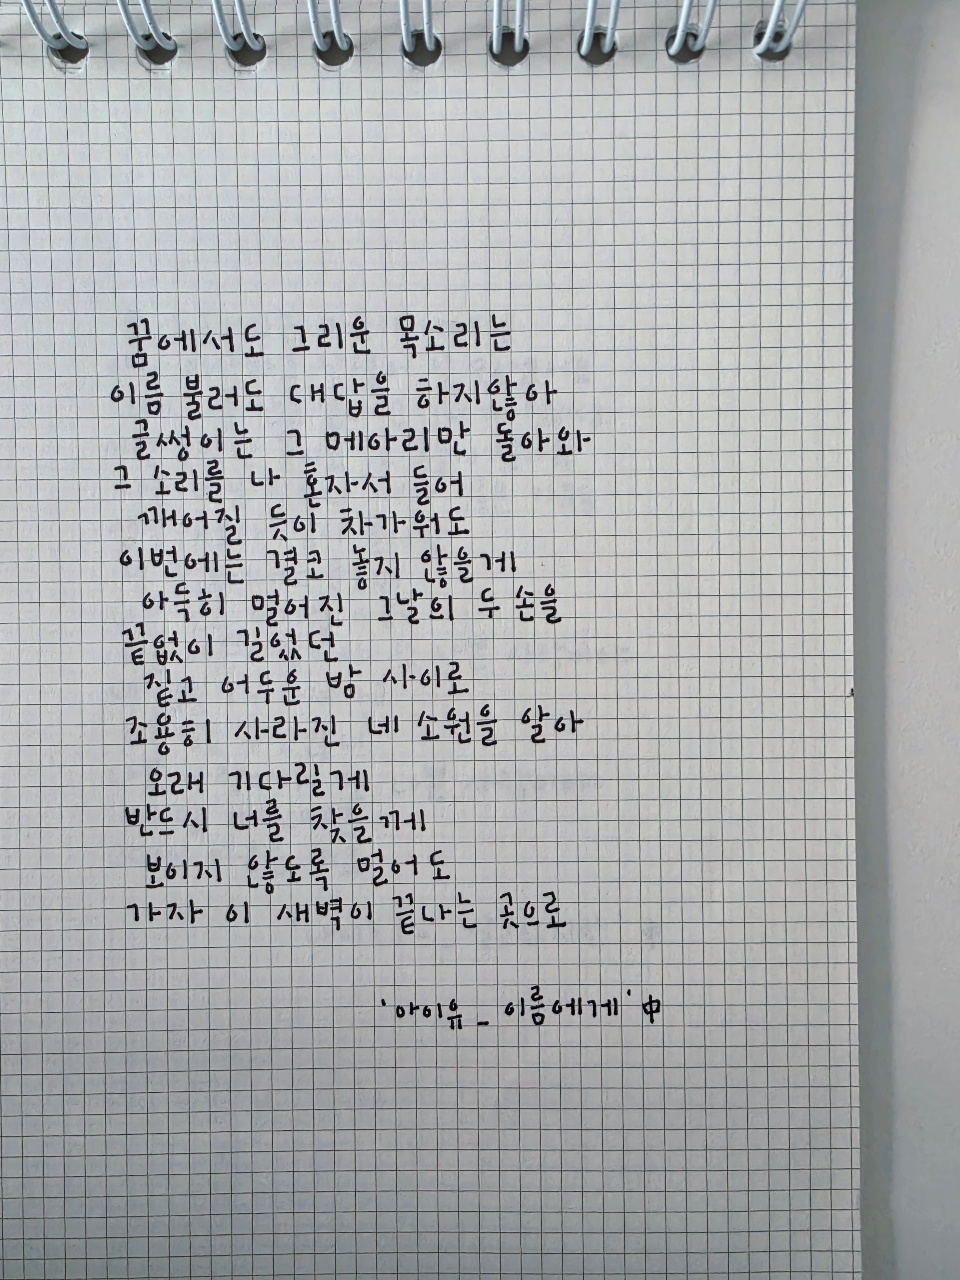 꿈에서도 그리운 목소리는
이름 불러도 대답을 하지않아
글썽이는 그 메아리만 돌아와
그 소리를 나 혼자서 들어
깨어질 듯이 차가워도
이번에는 결코 놓지 않을게
아득히 멀어진 그날의 두 손을
끝없이 길었던
짙고 어두운 밤 사이로
조용히 사라진 네 소원을 알아
오래 기다릴게
반드시 너를 찾을게
보이지 않도록 멀어도
가자 이 새벽이 끝나는 곳으로
'아이유 - 이름에게' 中